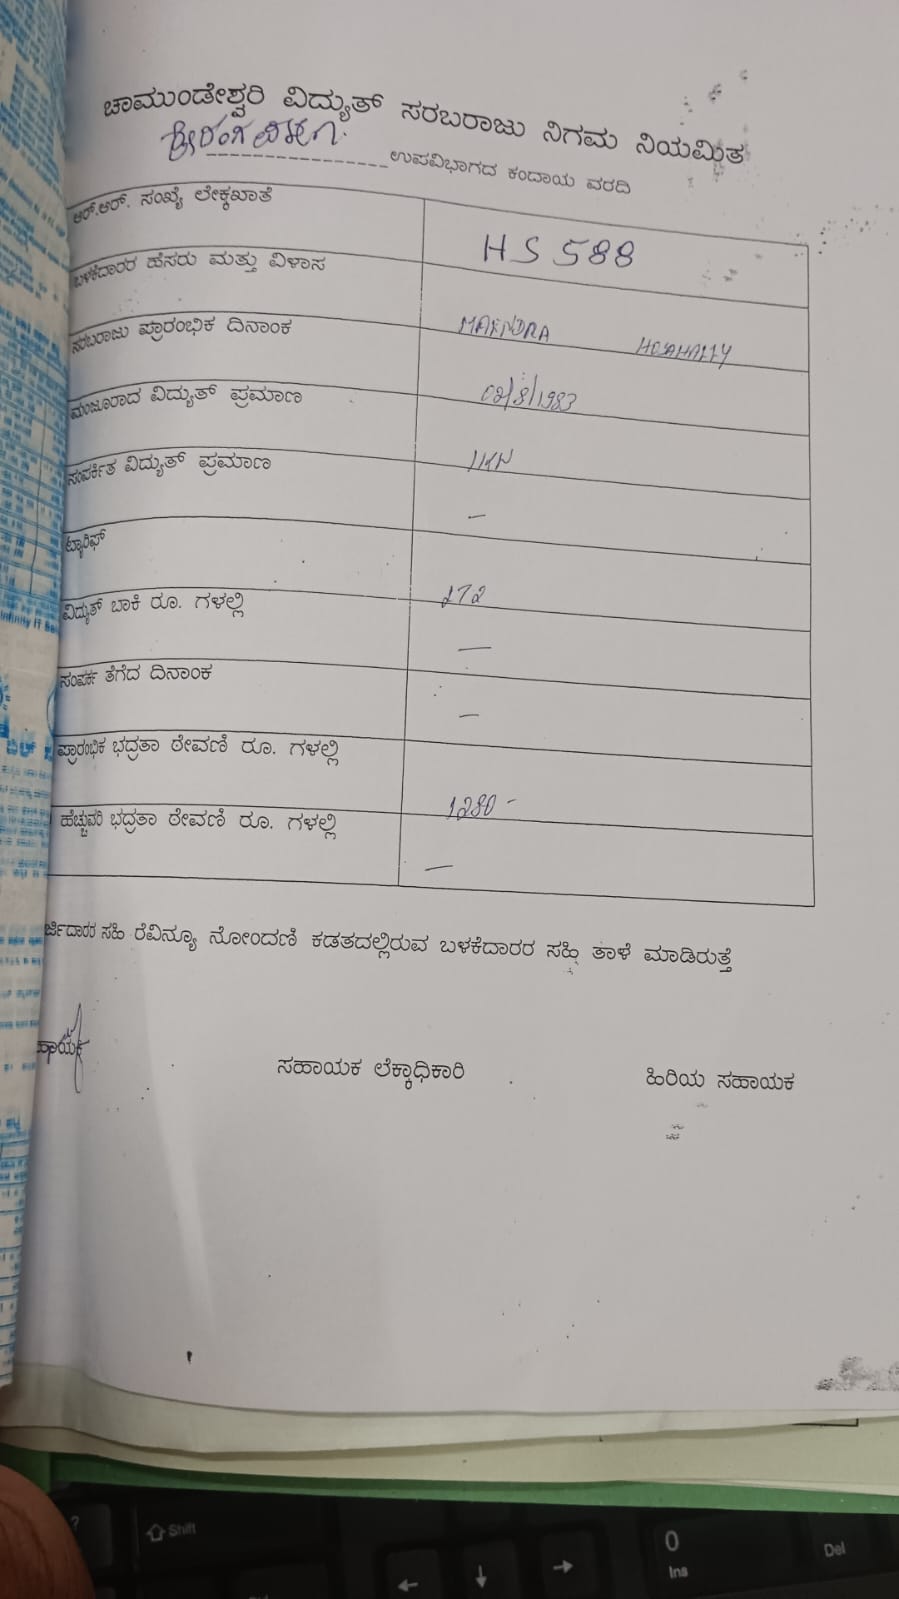 ಚಾಮುಂಡೇಶ್ವರಿ ವಿದ್ಯುತ್ ಸರಬರಾಜು ನಿಗಮ ನಿಯಮಿತ
ಉಪವಿಭಾಗದ ಕಂದಾಯ ವರದಿ
ಆರ್.ಆರ್. ಸಂಖ್ಯೆ ಲೇಕ್ಕಖಾತೆ HS 588
ಬಳಕೆದಾರರ ಹೆಸರು ಮತ್ತು ವಿಳಾಸ MAENDRA
ಸರಬರಾಜು ಪ್ರಾರಂಭಿಕ ದಿನಾಂಕ 02/8/1983
ಮಂಜೂರಾದ ವಿದ್ಯುತ್ ಪ್ರಮಾಣ 1KW
ಸಂಪರ್ಕಿತ ವಿದ್ಯುತ್ ಪ್ರಮಾಣ –
ಟ್ಯಾರಿಫ್ 272
ವಿದ್ಯುತ್ ಬಾಕಿ ರೂ. ಗಳಲ್ಲಿ –
ಸಂಪರ್ಕ ತೆಗೆದ ದಿನಾಂಕ –
ಪ್ರಾರಂಭಿಕ ಭದ್ರತಾ ಠೇವಣಿ ರೂ. ಗಳಲ್ಲಿ 1280 –
ಹೆಚ್ಚುವರಿ ಭದ್ರತಾ ಠೇವಣಿ ರೂ. ಗಳಲ್ಲಿ –
ರ್ಜಿದಾರರ ಸಹಿ ರೆವಿನ್ಯೂ ನೋಂದಣಿ ಕಡತದಲ್ಲಿರುವ ಬಳಕೆದಾರರ ಸಹಿ ತಾಳೆ ಮಾಡಿರುತ್ತೆ
ಸಹಾಯಕ ಲೆಕ್ಕಾಧಿಕಾರಿ ಹಿರಿಯ ಸಹಾಯಕ
Shift
0
Ins
Del